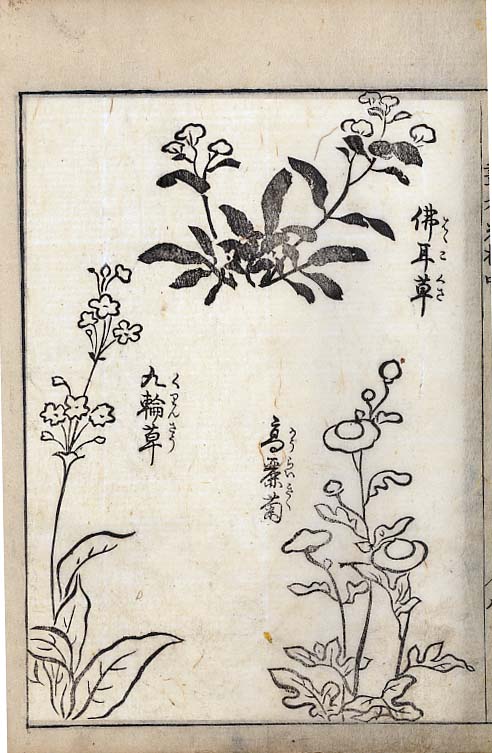 佛耳草
はゝこくさ
高麗菊
かうらいきく
九輪草
くりんさう